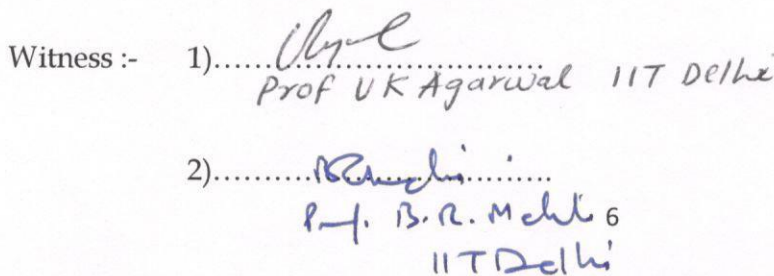 Witness :- 1)..............................
Prof UK Agarwal IIT Delhi
2)..............................
Prof. B.R. Mehta 6
IIT Delhi